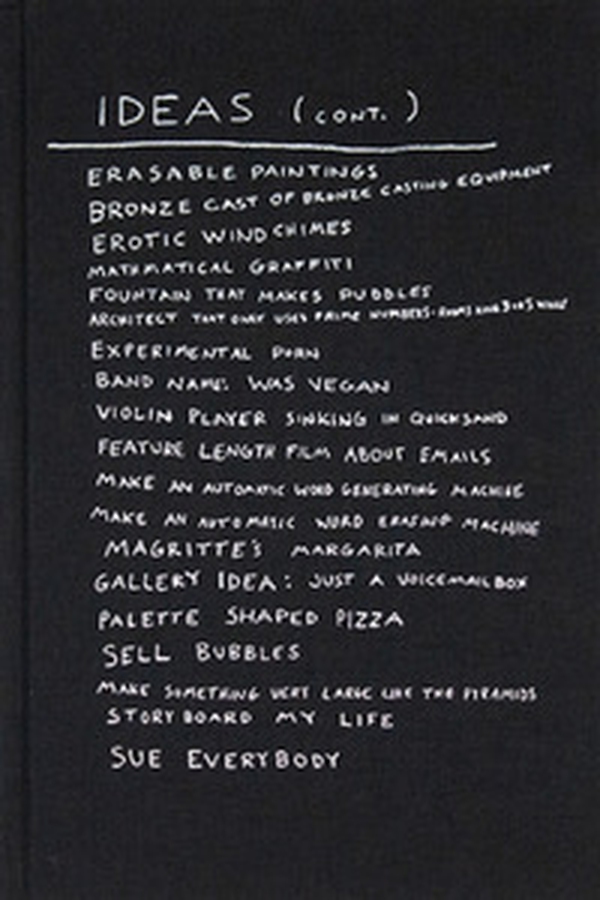 IDEAS (CONT.)
ERASABLE PAINTINGS
BRONZE CAST OF BRONZE CASTING EQUIPMENT
EROTIC WINDCHIMES
MATHMATICAL GRAFFITI
FOUNTAIN THAT MAKES PUDDLES
ARCHITECT THAT ONLY USES PRIME NUMBERS:
EXPERIMENTAL PORN
BAND NAME: WAS VEGAN
VIOLIN PLAYER SINKING IN QUICKSAND
FEATURE LENGTH FILM ABOUT EMAILS
MAKE AN AUTOMATIC WORD GENERATING MACHINE
MAKE AN AUTOMATIC WORD ERASING MACHINE
MAGRITTE'S MARGARITA
GALLERY IDEA: JUST A VOICEMAILBOX
PALETTE SHAPED PIZZA
SELL BUBBLES
MAKE SOMETHING VERY LARGE LIKE THE PYRAMIDS
STORYBOARD MY LIFE
SUE EVERYBODY